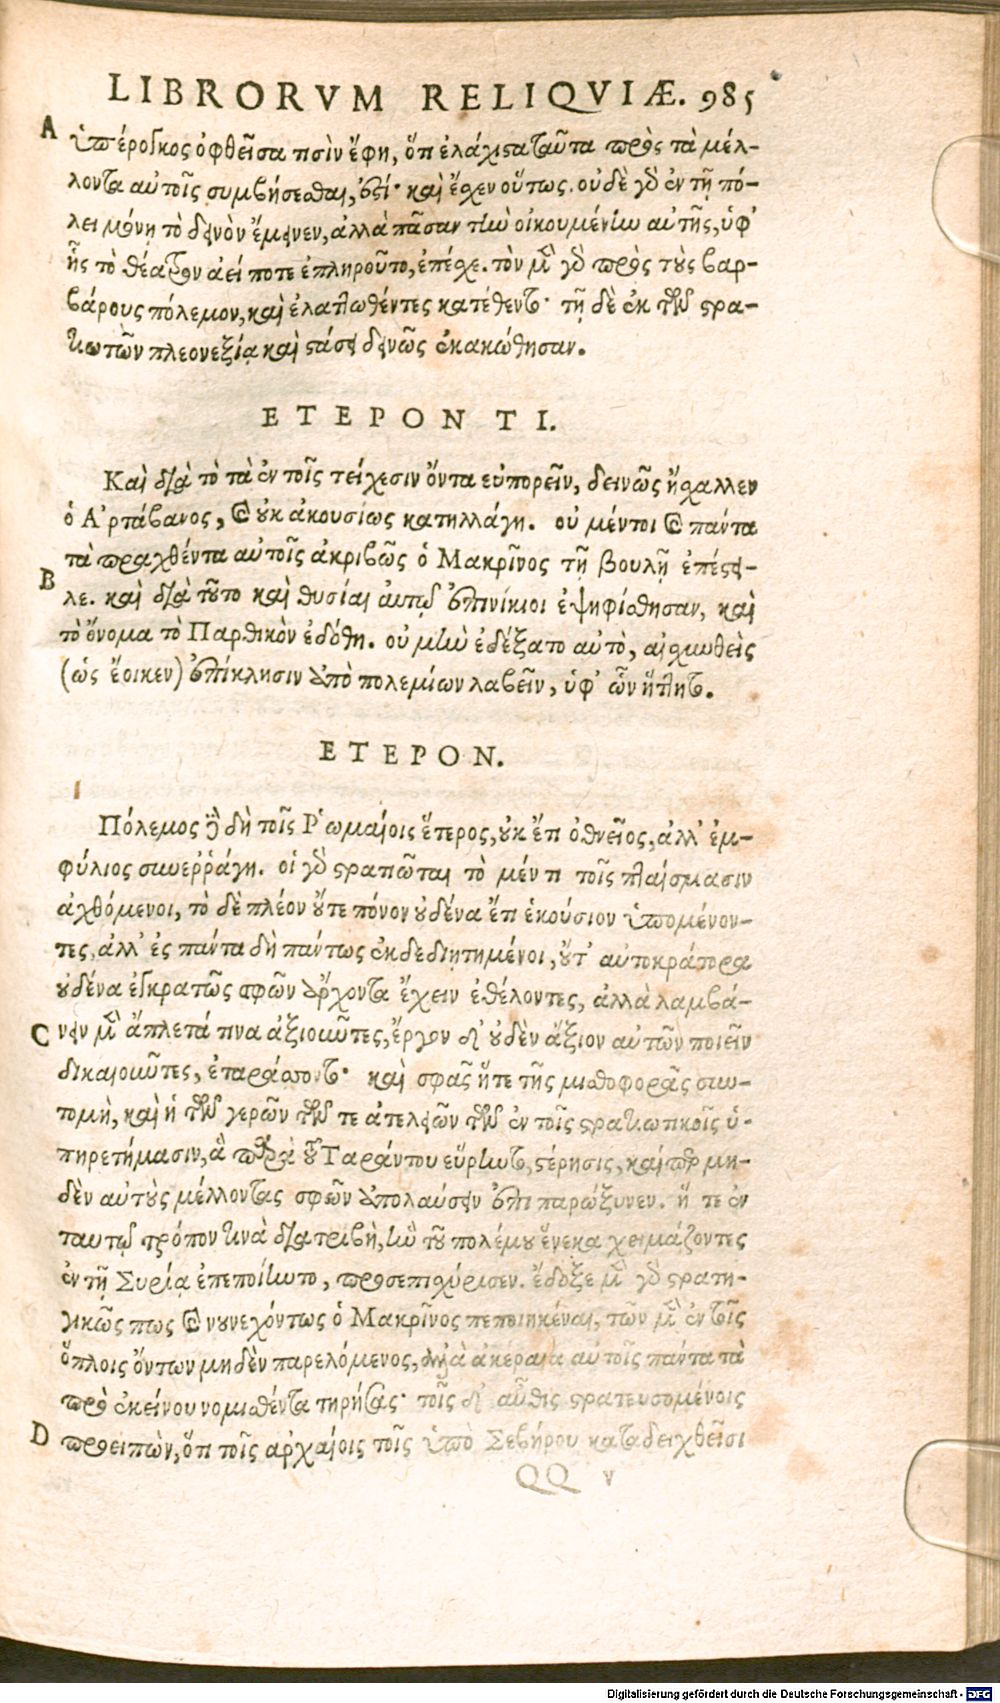 LIBRORVM RELIQVIÆ. 985
A
ὑπέρογκος ὀφθεῖσα τισὶν ἔφη, ὅτι ἐλάχιστα ταῦτα πρὸς τὰ μέλ-
λοντα αὐτοῖς συμβήσεσθαι, ἐστί· καὶ ἔσχεν οὕτως. οὐδὲ γὸ ἐν τῇ πό-
λει μόνῃ τὸ δεινὸν ἔμεινεν, ἀλλὰ πᾶσαν τὴν οἰκουμένην αὐτῆς, ὑφ'
ἧς τὸ θέατρον ἀεί ποτε ἐπληροῦτο, ἐπέσχε. τὸν μὲν γὸ πρὸς τοὺς βαρ-
βάρους πόλεμον, καὶ ἐλαττωθέντες κατέθεντο· τῇ δὲ ἐκ τῶν στρα-
τιωτῶν πλεονεξίᾳ καὶ στάσει δεινῶς ἐκακώθησαν.
ΕΤΕΡΟΝ ΤΙ.
Καὶ διὰ τὸ τὰ ἐν τοῖς τείχεσιν ὄντα εὐπορεῖν, δεινῶς ἤσχαλλεν
ὁ Ἀρτάβανος, καὶ οὐκ ἀκουσίως κατηλλάγη. οὐ μέντοι καὶ πάντα
τὰ πραχθέντα αὐτοῖς ἀκριβῶς ὁ Μακρῖνος τῇ βουλῇ ἐπέστει-
B
λε. καὶ διὰ τοῦτο καὶ θυσίαι αὐτῷ ἐπινίκιοι ἐψηφίσθησαν, καὶ
τὸ ὄνομα τὸ Παρθικὸν ἐδόθη. οὐ μὴν ἐδέξατο αὐτὸ, αἰσχυνθεὶς
(ὡς ἔοικεν) ἐπίκλησιν ἀπὸ πολεμίων λαβεῖν, ὑφ' ὧν ἥττητο.
ΕΤΕΡΟΝ.
Πόλεμος δὲ δὴ τοῖς Ῥωμαίοις ἕτερος, οὐκ ἔτι ὀθνεῖος, ἀλλ' ἐμ-
φύλιος συνεῤῥάγη. οἱ γὸ στρατιῶται τὸ μέν τι τοῖς πλαίσμασιν
ἀχθόμενοι, τὸ δὲ πλέον οὔτε πόνον οὐδένα ἔτι ἑκούσιον ὑπομένον-
τες, ἀλλ' ἐς πάντα δὴ πάντως ἐκδεδιῃτημένοι, οὔτ' αὐτοκράτορα
οὐδένα ἐγκρατῶς σφῶν ἄρχοντα ἔχειν ἐθέλοντες, ἀλλὰ λαμβά-
C
νειν μὲν ἄπλετά τινα ἀξιοῦντες, ἔργον δ' οὐδὲν ἄξιον αὐτῶν ποιεῖν
δικαιοῦντες, ἐταράσσοντο· καὶ σφᾶς ἥτε τῆς μισθοφορᾶς συν-
τομὴ, καὶ ἡ τῶν γερῶν τῶν τε ἀτελειῶν τῶν ἐν τοῖς στρατιωτικοῖς ὑ-
πηρετήμασιν, ἃ παρὰ τοῦ Ταράντου εὕρηντο, στέρησις, καίπερ μη-
δὲν αὐτοὺς μέλλοντας σφῶν ἀπολαύσειν ἐπιπαρώξυνεν. ἥ τε ἐν
ταυτῷ τρόπον τινὰ διατριβὴ, ἣν τοῦ πολέμου ἕνεκα χειμάζοντες
ἐν τῇ Συρίᾳ ἐπεποίηντο, προσεπισχύρισεν. ἔδοξε μὲν γὸ στρατη-
γικῶς πως καὶ νουνεχόντως ὁ Μακρῖνος πεποιηκέναι, τῶν μὲν ἐν τοῖς
ὅπλοις ὄντων μηδὲν παρελόμενος, ἀλλὰ ἀκέραια αὐτοῖς πάντα τὰ
πρὸ ἐκείνου νομισθέντα τηρήσας· τοῖς δ' αὖθις στρατευσομένοις
D
προειπὼν, ὅτι τοῖς ἀρχαίοις τοῖς ὑπὸ Σεβήρου καταδειχθεῖσι
QQ v
Digitalisierung gefördert durch die Deutsche Forschungsgemeinschaft - DFG